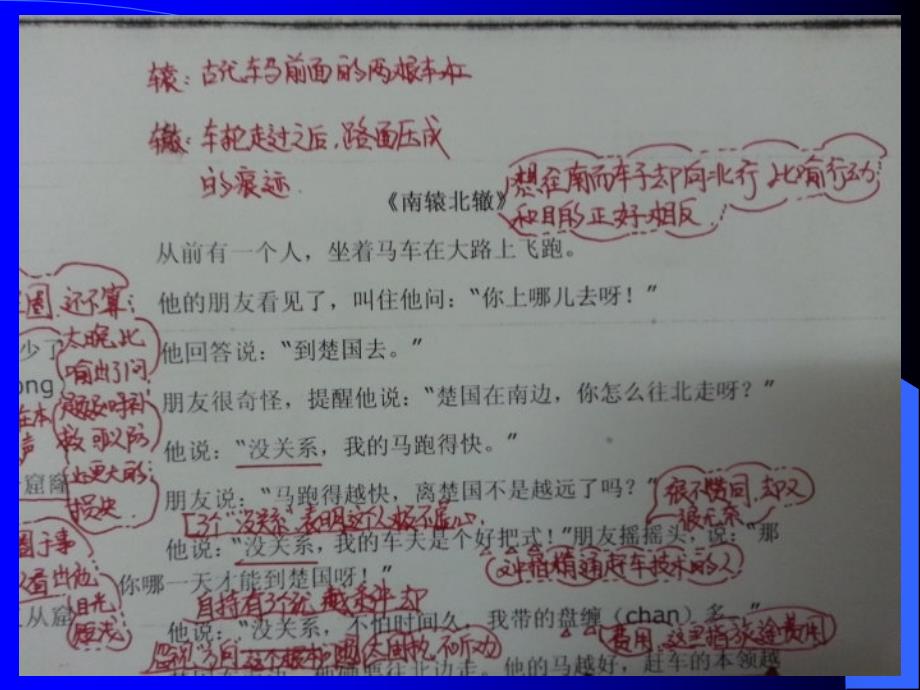 辕：古代车马前面的两根车杠
辙：车轮走过之后，路面压成
的痕迹
《南辕北辙》
想在南而车子却向北行 比喻行动
和目的正好相反
从前有一个人，坐着马车在大路上飞跑。
他的朋友看见了，叫住他问：“你上哪儿去呀！”
圈 还不算：
少了
太晚 比
喻出了问
他回答说：“到楚国去。”
ong
朋友很奇怪，提醒他说：“楚国在南边，你怎么往北走呀？”
在本
声
救 可以防
止更大的
损失
他说：“没关系，我的马跑得快。”
窟窿
朋友说：“马跑得越快，离楚国不是越远了吗？”
很不赞同，却又
很无奈
3个“没关系”表明这个人极不虚心
他说：“没关系，我的车夫是个好把式！”朋友摇摇头，说：“那
这里指精通赶车技术的人
你哪一天才能到楚国呀！”
圈于事
看出他
目光
短浅
从窟
自持有3个优越条件却
他说：“没关系，不怕时间久，我带的盘缠（chan）多。”
费用，这里指旅途费用
太固执，不听劝
他的马越好，赶车的本领越